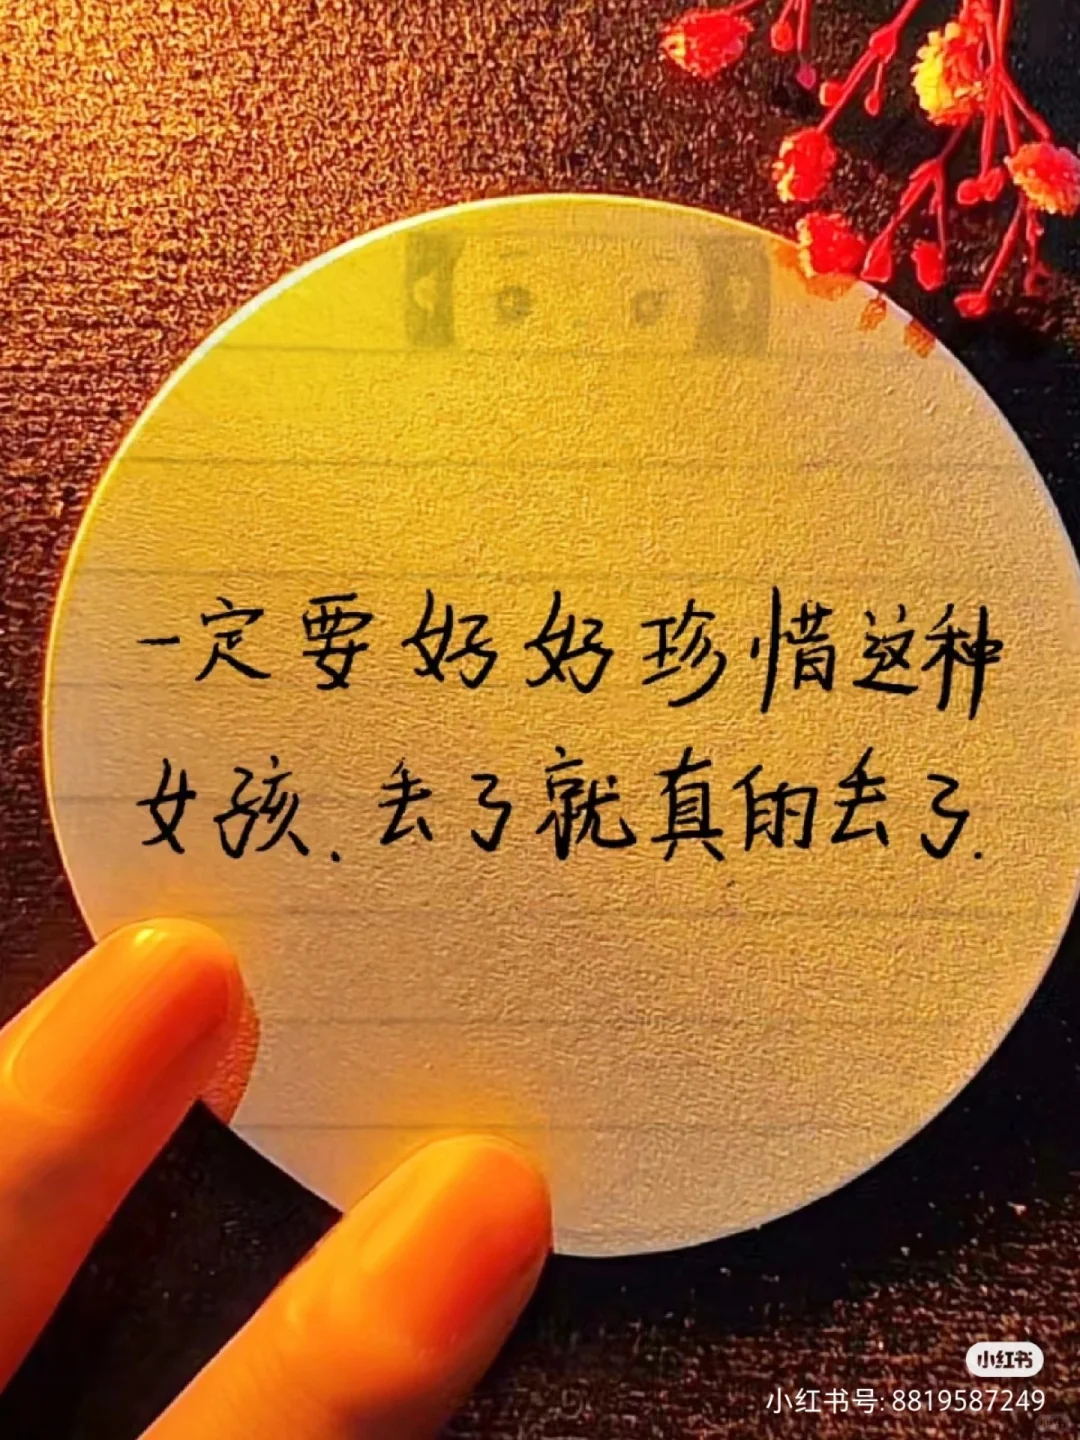 一定要好好珍惜这种
女孩.丢了就真的丢了.
小红书
小红书号: 8819587249